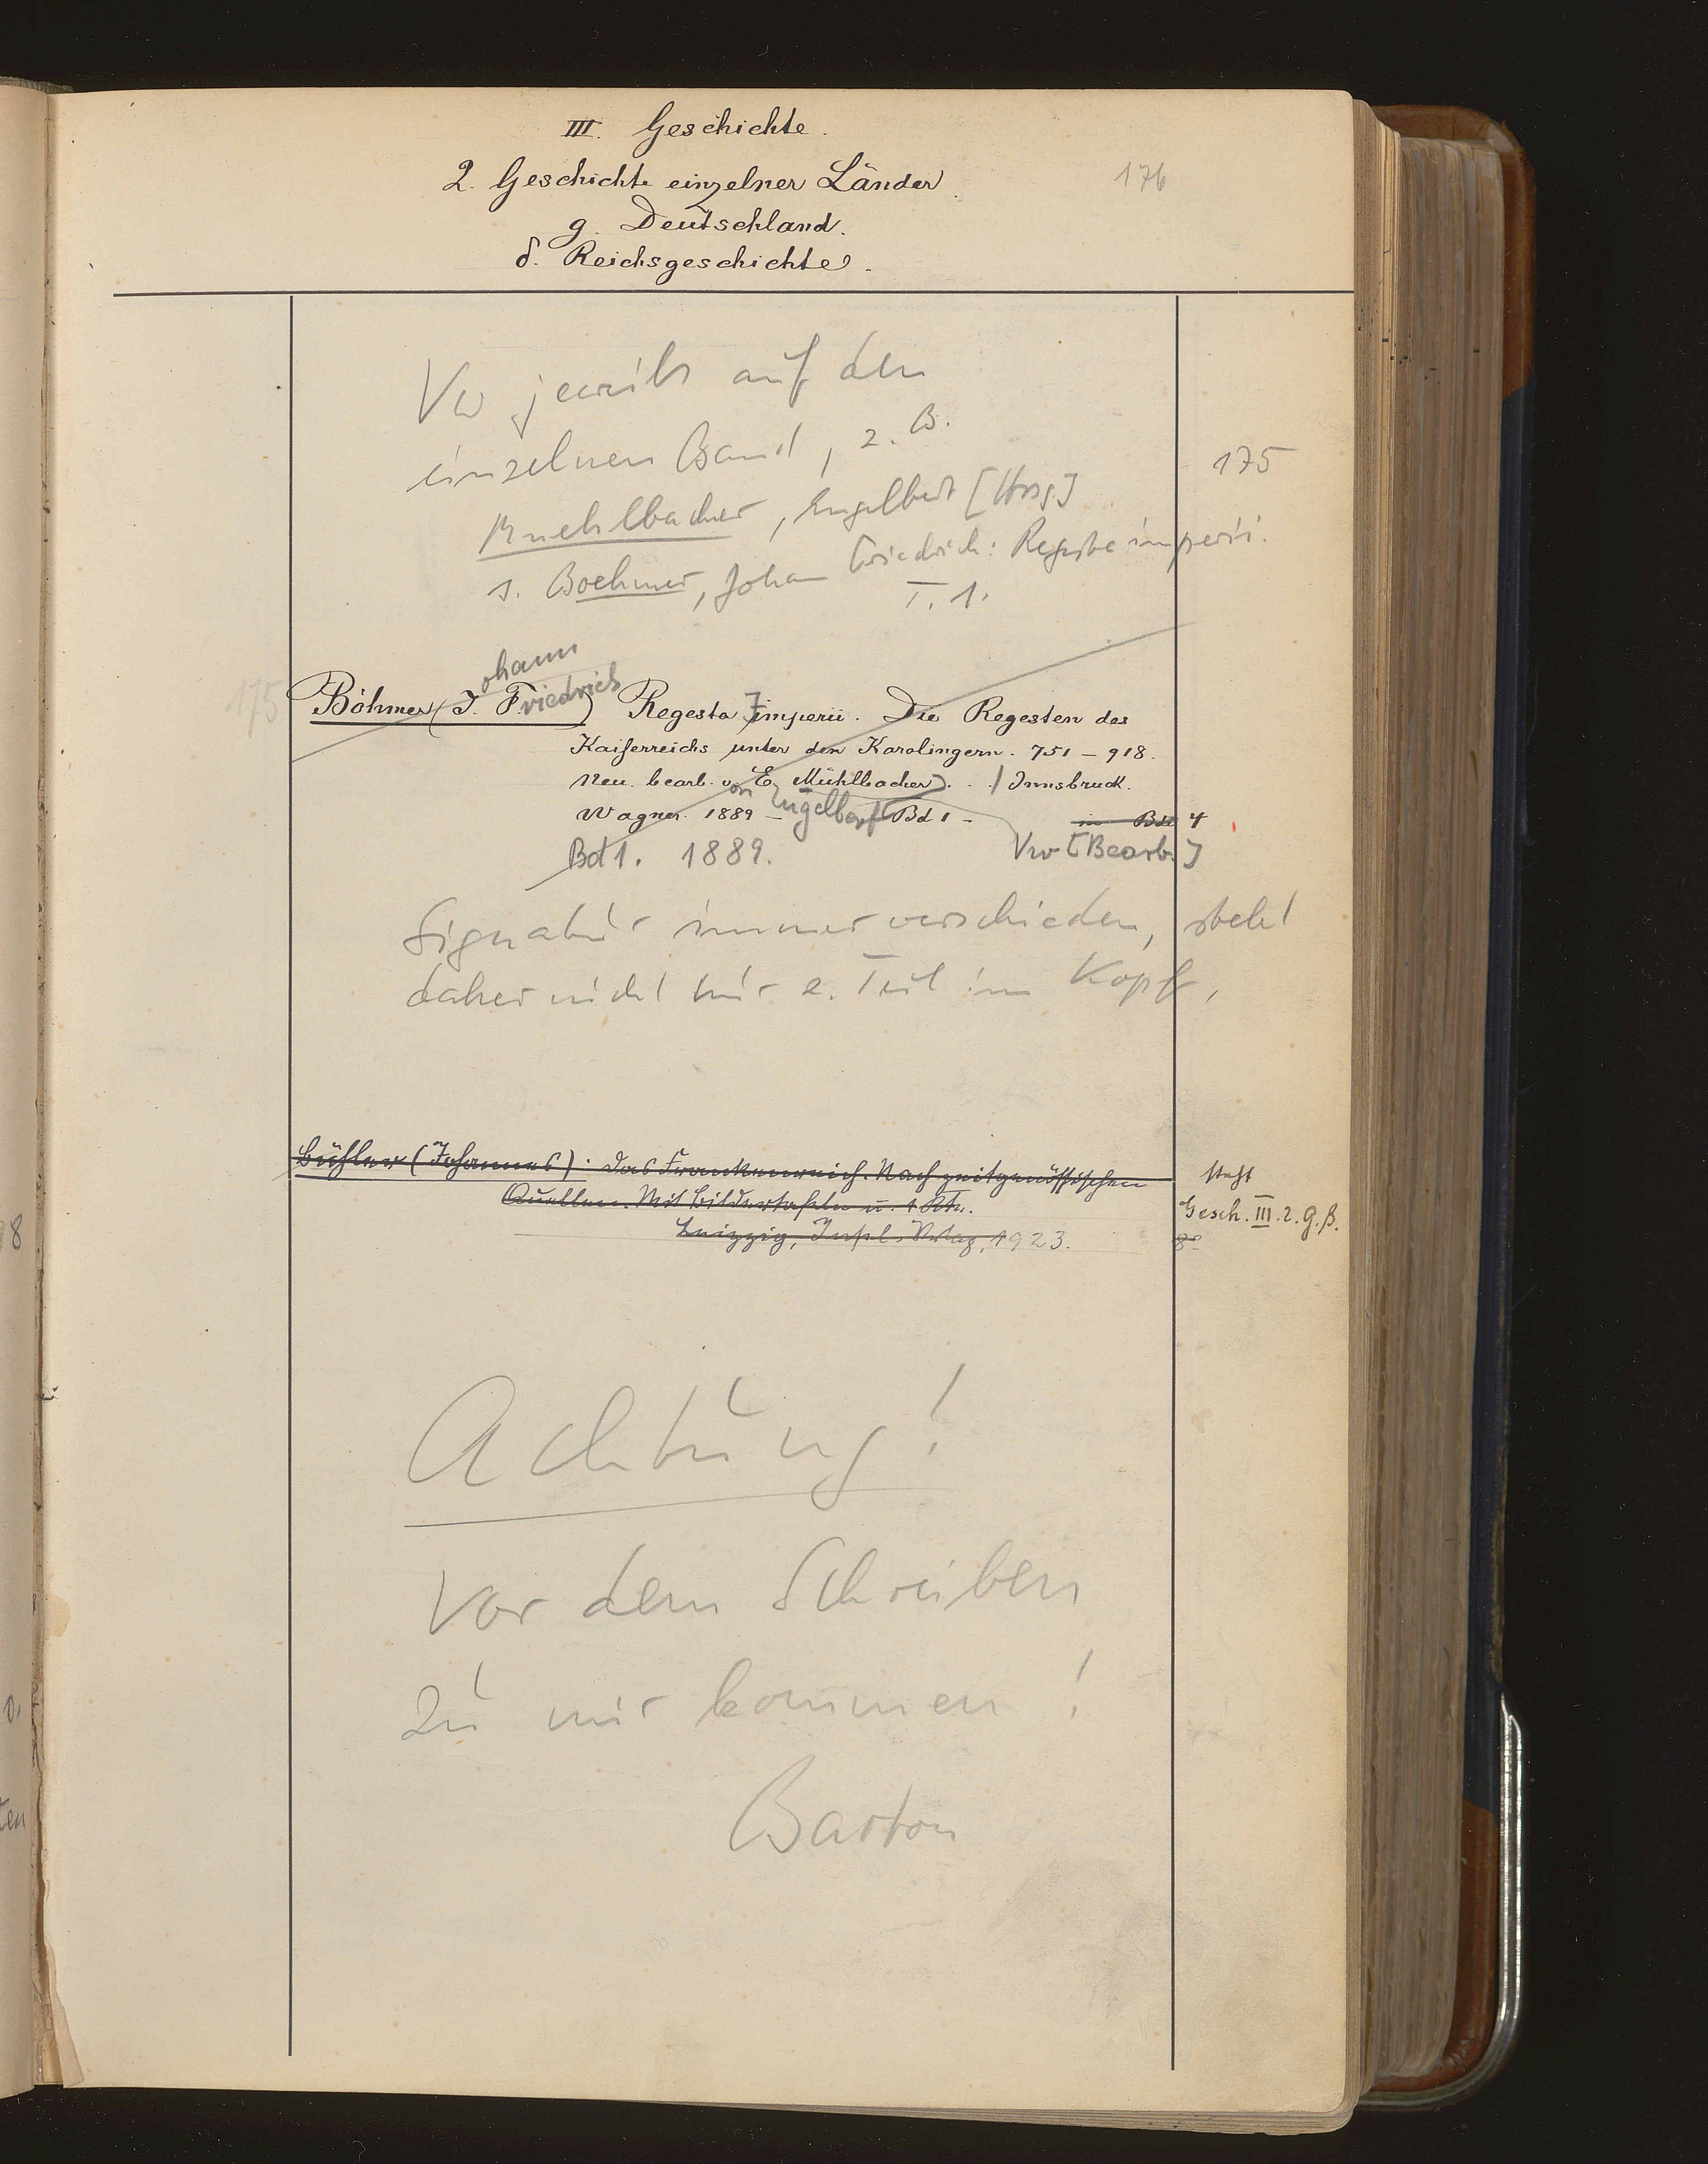 III. Geschichte.
2. Geschichte einzelner Länder.
176
g. Deutschland.
δ. Reichsgeschichte.
Vw jeweils auf den
einzelnen Band, z. B.
175
Muehlbacher, Engelbert [Hrsg]
s. Boehmer, Johann Friedrich: Regesta imperii.
T. 1.
ohann
175 Böhmer (J. Friedrich) Regesta Imperii. Die Regesten des
Kaiserreichs unter den Karolingern. 751 – 918.
Neu bearb. v. E. Mühlbacher. . / Innsbruck.
von Engelbert
Wagner. 1889 – Bd 1 – in Bde 4
Bd 1. 1889. Vw [Bearb.]
Signatur immer verschieden, steht
daher nicht für e. Teil im Kopf,
Bühler (Johannes): Das Frankenreich. Nach zeitgenössischen
Quellen. Mit Bildertafeln u. 1 Kte.
Leipzig, Insel-Verlag, 1923.
steht
Gesch. III. 2. g. β.
8°
Achtung!
Vor dem Schreiben
zu mir kommen!
Barton
98
o.
ten